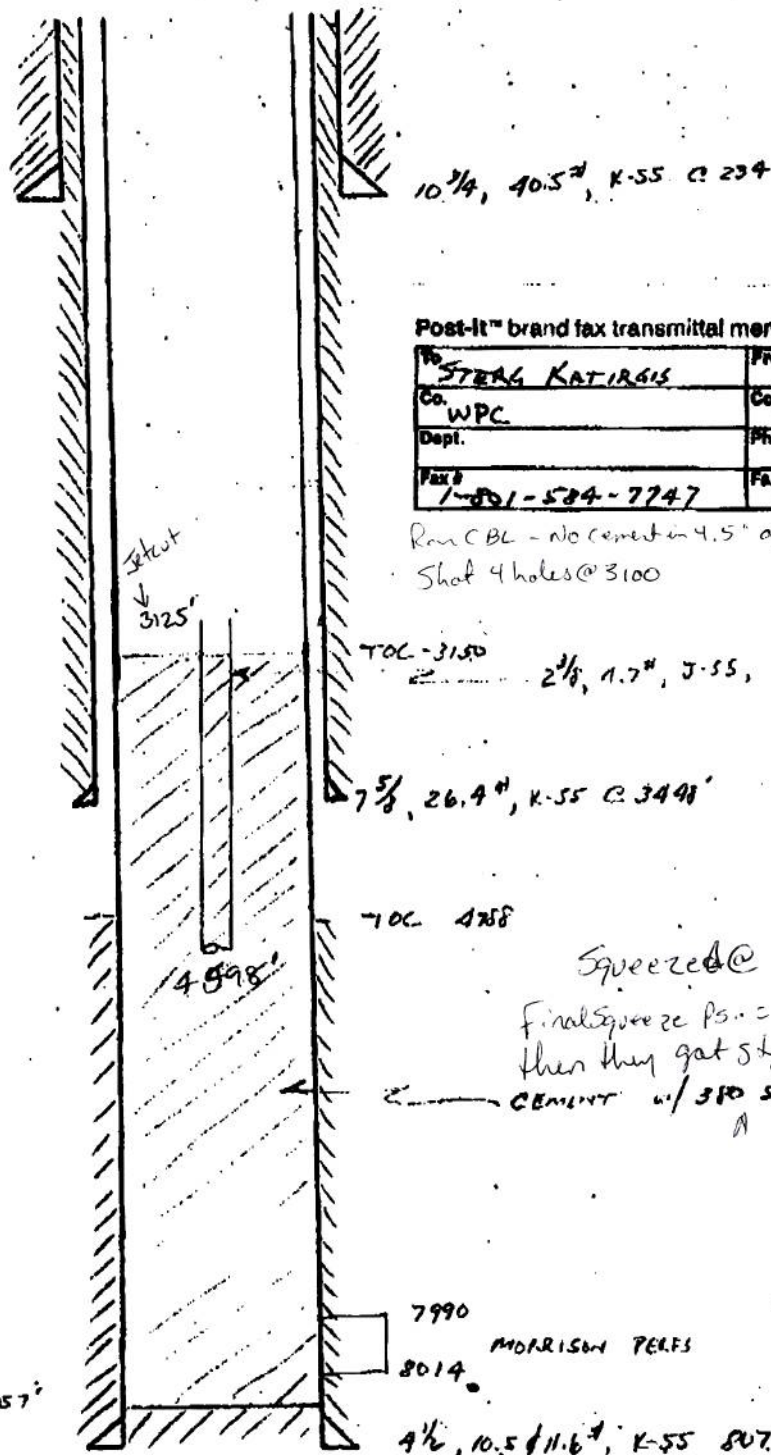 10 3/4, 40.5#, K-55 @ 234
Post-It™ brand fax transmittal mem
To STERG KATIRGIS
Co. WPC
Dept.
Fax # 1-801-584-7747
Fr
Co
Ph
Fa
Ran CBL - No Cement in 4.5"
Shot 4 holes @ 3100
Jetcut
3125'
TOC - 3150
2 3/8, 4.7#, J-55,
7 5/8, 26.4#, K-55 @ 3448'
TOC 4758
Squeezed @
Final Squeeze Psi =
then they got
CEMENT w/ 380 S
7990
MORRISON PERFS
8014
57'
4 1/2, 10.5 & 11.6#, K-55 807